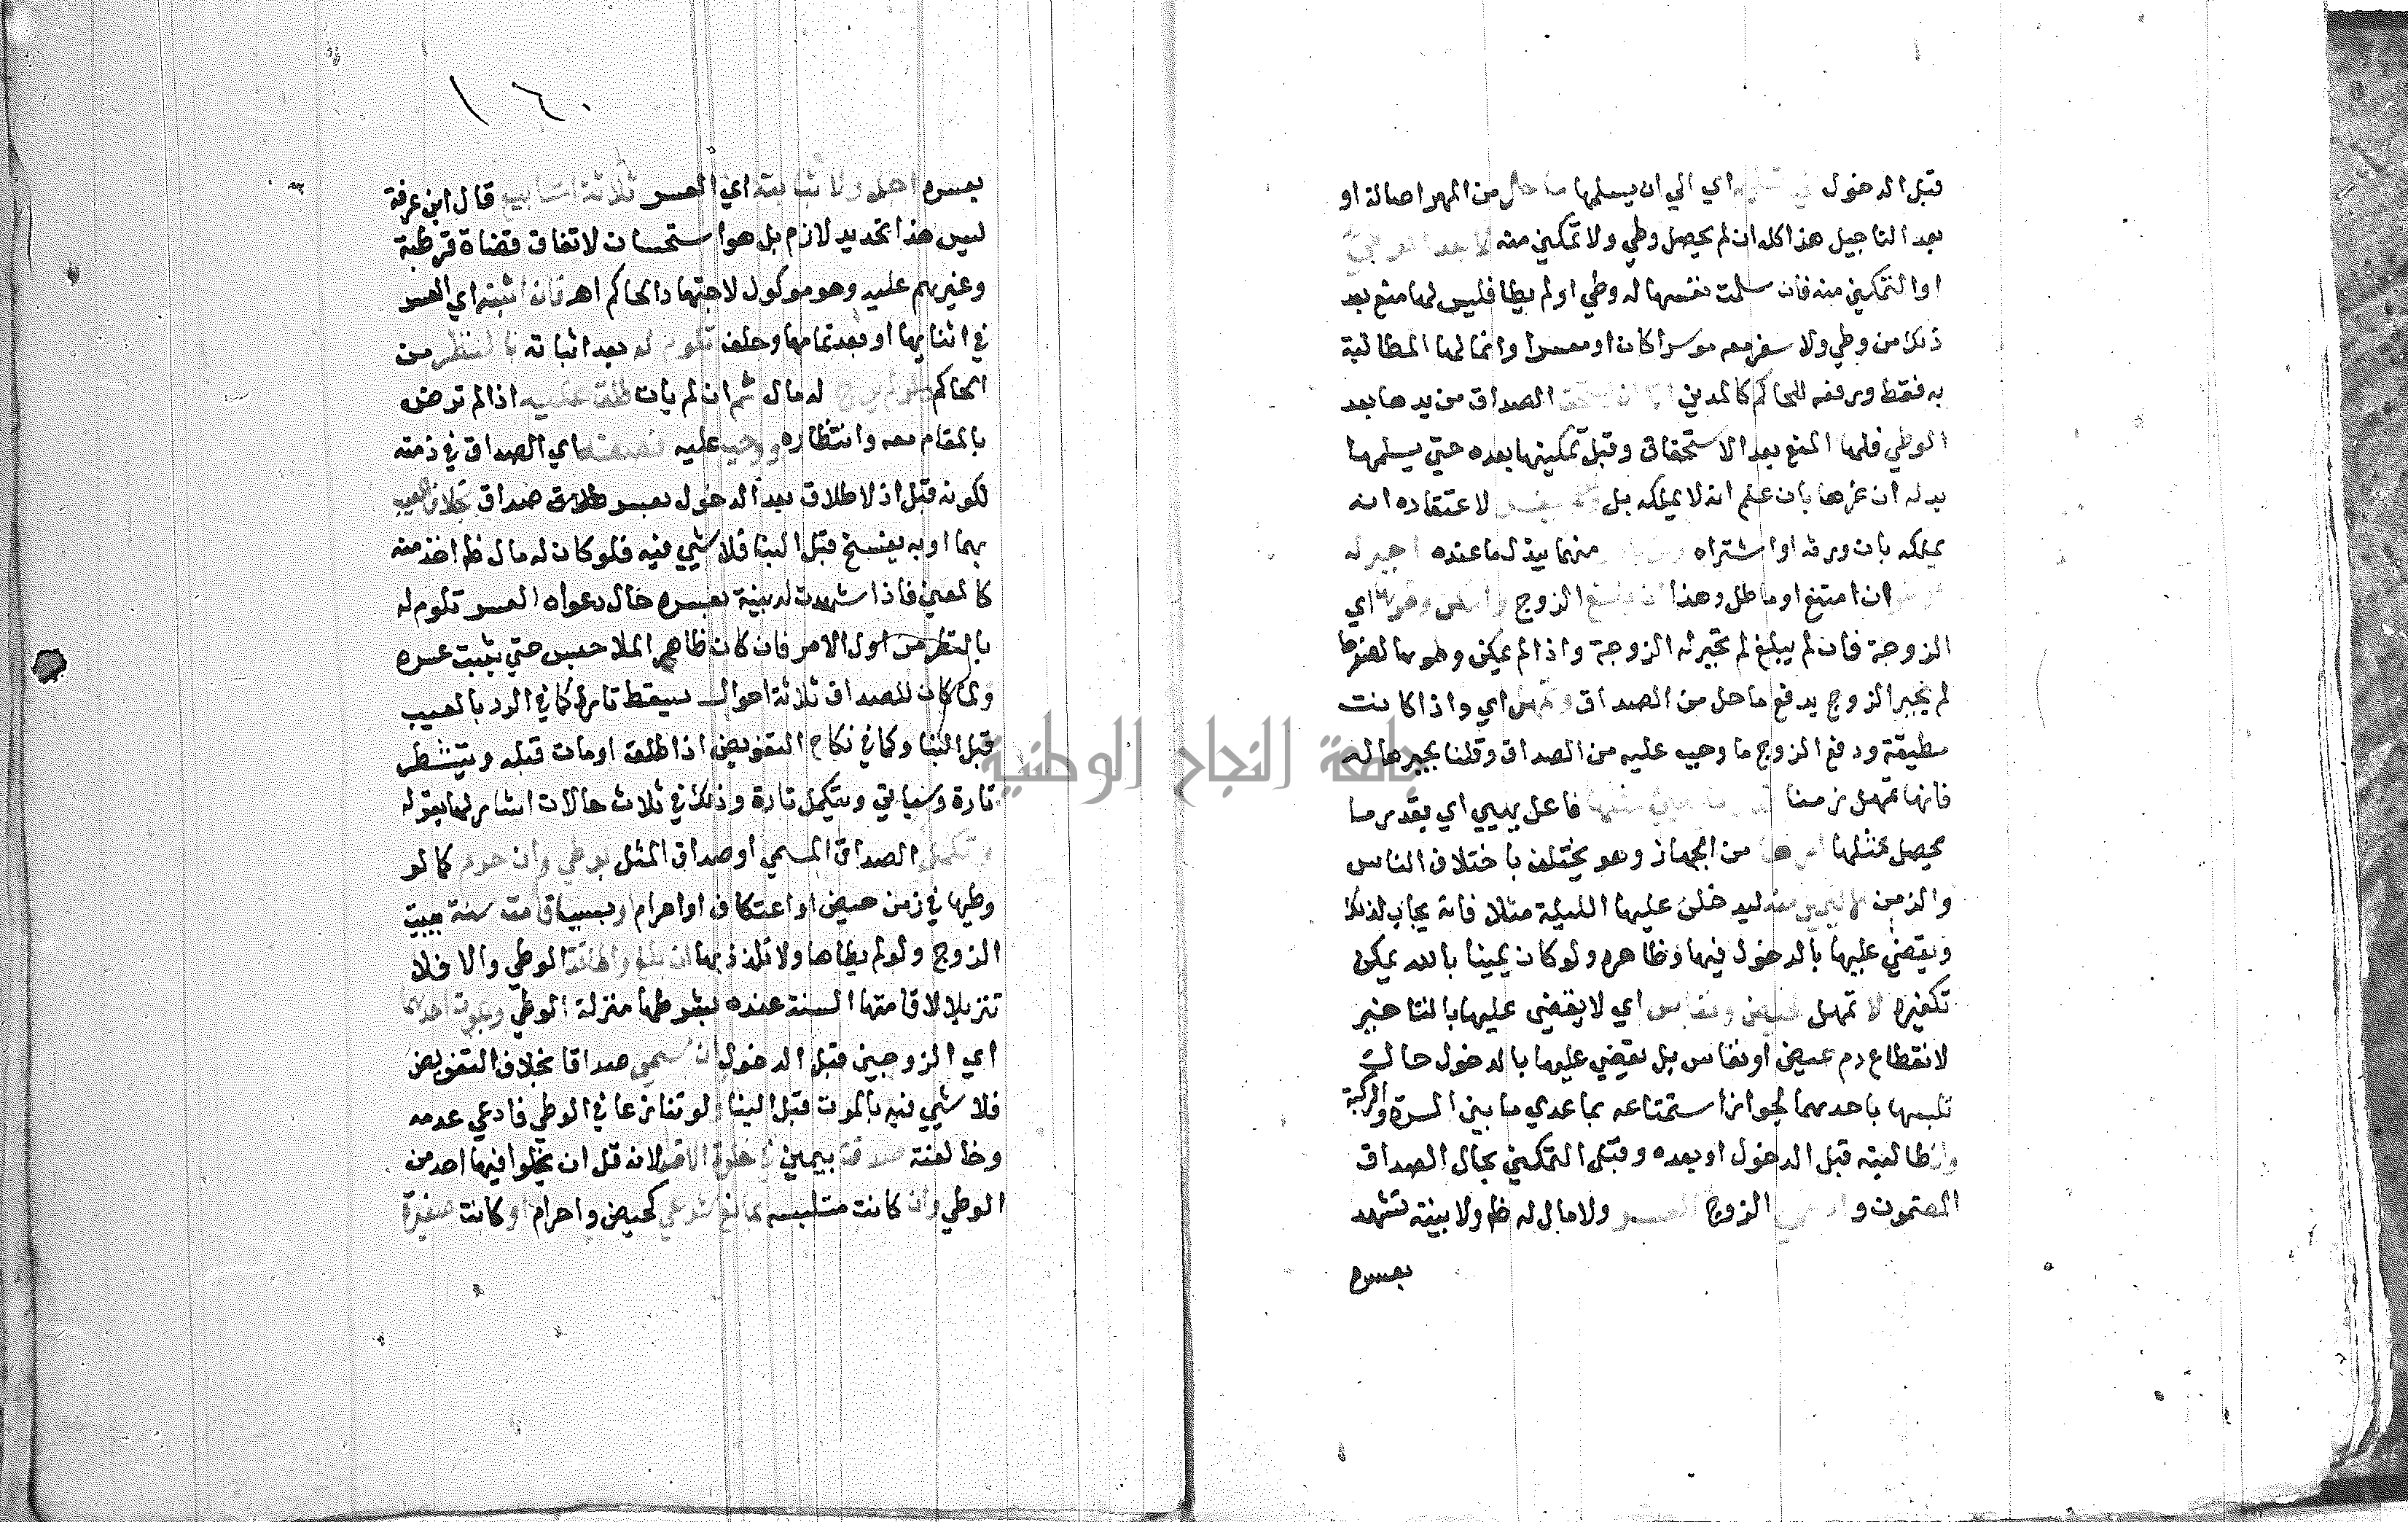 قبل الدخول اي الي ان يسلمها ما حل من المهر اصالة او
بعد التاجيل هذا كله ان لم يحصل وطي ولا تمكين منه لا بعد الوطي
او التمكين منه فان سلمت نفسها له وطي او لم يطا فليس لها منع بعد
ذلك من وطي ولا سفر معه موسرا كان او معسرا وانما لها المطالبة
به فقط ورفعه للحاكم كالمدين الا ان يستحق الصداق من يدها بعد
الوطي فلها المنع بعد الاستحقاق وقبل تمكينها بعده حتي يسلمها
بدله ان غرها بان علم انه لا يملكه بل لاعتقاده انه
يملكه بان ورثه او اشتراه منهما بيذل ما عنده اجبر له
ان امتنع او ماطل وهذا ان بلغ الزوج وامكن وطوها اي
الزوجة فان لم يبلغ لم تجبر له الزوجة واذا لم يمكن وطوها لصغرها
لم يجبر الزوج يدفع ما حل من الصداق وتمهل اي واذا كانت
مطيقة ودفع الزوج ما وجب عليه من الصداق وقلنا بجبرها له
فانها تمهل زمنا قدر ما يهيئ مثلها فاعل يهيي اي بقدر ما
يحصل مثلها امرها من الجهاز وهو يختلف باختلاف الناس
والزمن الا ليمين منه ليدخلن عليها الليلة مثلا فانه يجاب لذلك
ويقضي عليها بالدخول فيها وظاهره ولو كان يمينا بالله يمكن
تكفيره لا تمهل لحيض ونفاس اي لا يقضي عليها بالتاخير
لانقطاع دم حيض او نفاس بل يقضي عليها بالدخول حالت
تلبسها باحدهما لجواز استمتاعه بما عدي ما بين السرة والركبة
وان طالبته قبل الدخول او بعده وقبل التمكين بحال الصداق
المضمون وادعي الزوج العسر ولا مال له ظاهر ولا بينة تشهد
بعسره
١٦٠
بعسره اجل ولا ثباته اي العسر ثلاثة اسابيع قال ابن عرفة
ليس هذا تحديد لازم بل هو استحسان لاتفاق قضاة قرطبة
وغيرهم عليه وهو موكول لاجتهاد الحاكم اهـ فان اثبته اي العسر
في اثنايها او بعد تمامها وحلف تلوم له بعد اثباته بالنظر من
الحاكم ولو لم يرج له مال ثم ان لم يات طلق عليه اذا لم ترض
بالمقام معه وانتظاره ووجب عليه نصفها اي الصداق في ذمته
لكونه قبل اذ لا طلاق بعد الدخول بعسر صداق بخلاف العيب
بهما او به يفسخ قبل البنا فلا شي فيه فلو كان له مال ظاهر اخذ منه
كالمعين فاذا شهدت له بينة بعسره حال دعواه العسر تلوم له
بالنظر من اول الامر فان كان ظاهر الملا حبس حتي يثبت عسره
ولما كان للصداق ثلاثة احوال سيقط تارة كما في الرد بالعيب
قبل البنا وكما في نكاح التفويض اذا طلق او مات قبله ويتشطر
تارة وسياتي ويتكمل تارة وذلك في ثلاث حالات اشار لها بقوله
وتكمل الصداق المسمي او صداق المثل بوطي وان حرم كما لو
وطيها في زمن حيض او اعتكاف او احرام او بسياق منه سنة ببيت
الزوج ولو لم يطاها ولا تلذذ بها ان بلغ واطاقت الوطي والا فلا
تنزيلا لاقامتها السنة عنده بشرطها منزلة الوطي وبموت احدهما
اي الزوجين قبل الدخول ان سمي صداقا بخلاف التفويض
فلا شي فيه بالموت قبل البنا ولو تنازعا في الوطي فادعي عدمه
وخالفته صدقت بيمين في خلوة الاهتدا لانه قل ان يخلوا فيها احد من
الوطي وان كانت متلبسه بمانع شرعي كحيض واحرام او كانت صغيرة